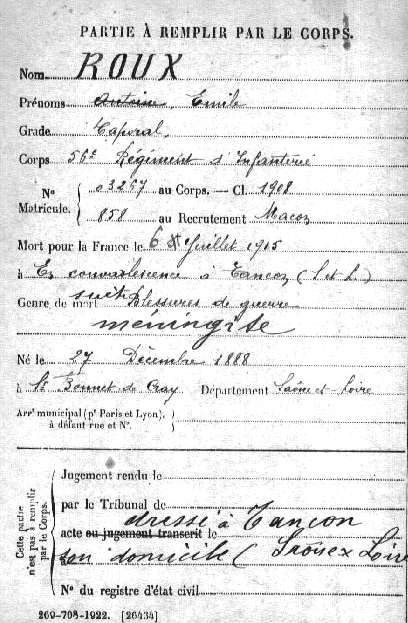 PARTIE À REMPLIR PAR LE CORPS.
Nom ROUX
Prénoms Antoine Emile
Grade Caporal
Corps 56e Régiment d'Infanterie
No Matricule. 03257 au Corps. — Cl. 1908
858 au Recrutement Macon
Mort pour la France le 6 Juillet 1915
à En convalescence à Tancon (S et L.)
Genre de mort suite blessures de guerre
méningite
Né le 27 Décembre 1888
à St Bonnet de Cray Département Saône-et-Loire
Arrt municipal (pr Paris et Lyon),
à défaut rue et No.
Cette partie n'est pas à remplir par le Corps.
Jugement rendu le
par le Tribunal de
acte ou jugement transcrit le dressé à Tancon
son domicile (Saône x Loire
No du registre d'état civil
269-708-1922. [26434]